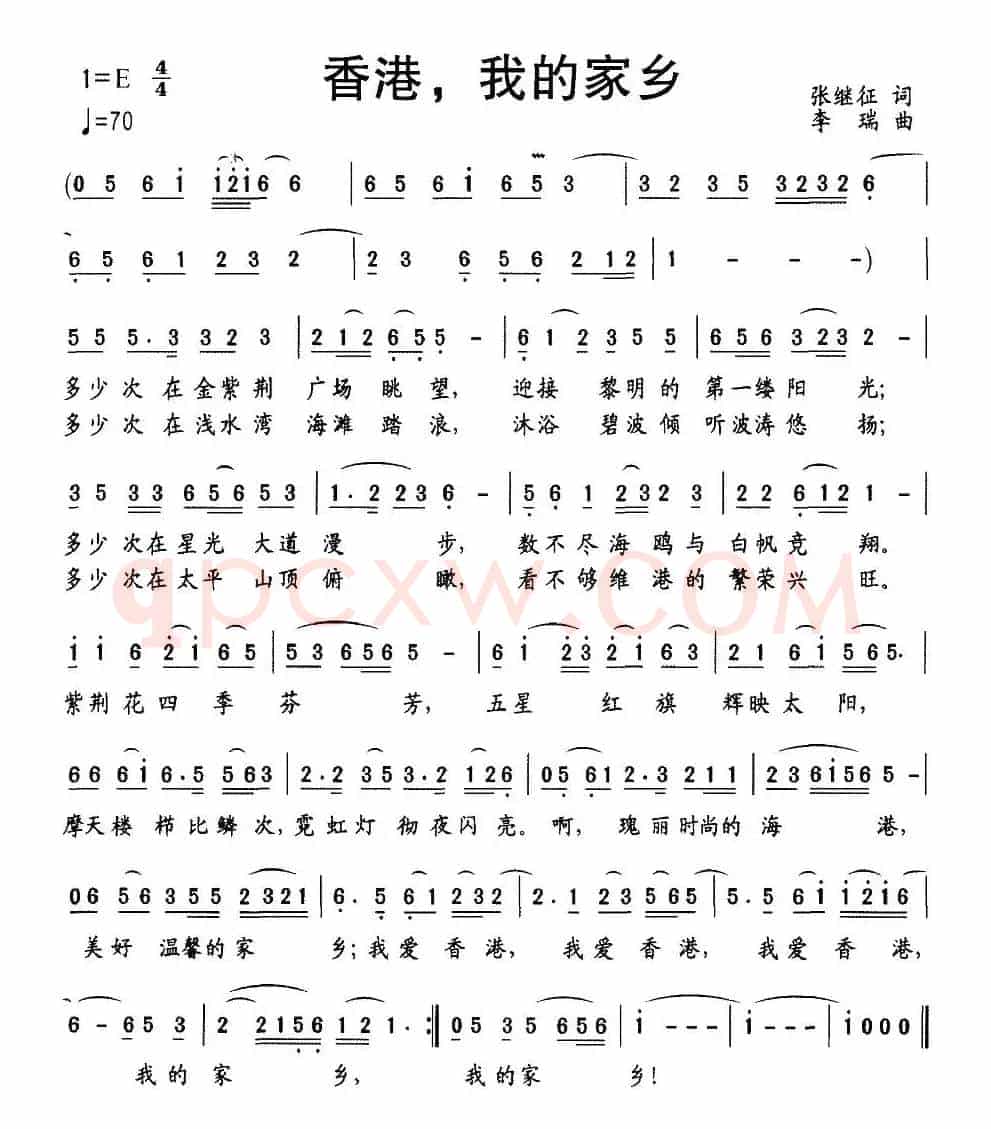 香港，我的家乡
1=E 4/4
♩=70
张继征 词
李 瑞 曲
(0 5 6 i i2i6 6 | 6 5 6 i 6 5 3 | 3 2 3 5 3232 6 |
6 5 6 1 2 3 2 | 2 3 6 5 6 2 12 | 1 - - -) |
5 5 5. 3 3 2 3 | 2 1 2 6 5 5 - | 6 1 2 3 5 5 | 6 5 6 3 2 3 2 - |
多少次 在金紫荆 广场 眺 望， 迎接 黎明的 第一缕阳 光；
多少次 在浅水湾 海滩 踏 浪， 沐浴 碧波倾 听波涛悠 扬；
3 5 3 3 6 5 6 5 3 | 1. 2 2 2 3 6 - | 5 6 1 2 3 2 3 | 2 2 6 1 2 1 - |
多少 次在星光 大道 漫 步， 数不尽海 鸥与 白帆竞 翔。
多少 次在太平 山顶 俯 瞰， 看不够维 港的 繁荣兴 旺。
qpcxw.COM
i i 6 2 i 6 5 | 5 3 6 5 6 5 - | 6 i 2 3 2 i 6 3 | 2 1 6 i 5 6 5. |
紫荆花四 季 芬 芳， 五星 红 旗 辉映太 阳，
6 6 6 i 6. 5 5 6 3 | 2. 2 3 5 3. 2 1 2 6 | 0 5 6 1 2. 3 2 1 1 | 2 3 6 i 5 6 5 - |
摩天楼 栉比鳞 次，霓 虹灯 彻夜闪 亮。啊， 瑰丽时尚的 海 港，
0 6 5 6 3 5 5 2 3 2 1 | 6. 5 6 1 2 3 2 | 2. 1 2 3 5 6 5 | 5. 5 6 i i 2 i 6 |
美好 温馨的家 乡；我爱 香 港， 我爱香 港， 我爱 香 港，
6 - 6 5 3 | 2 2 1 5 6 1 2 1. :‖ 0 5 3 5 6 5 6 | i - - - | i - - - | i 0 0 0 ‖
我的 家 乡， 我的家 乡！